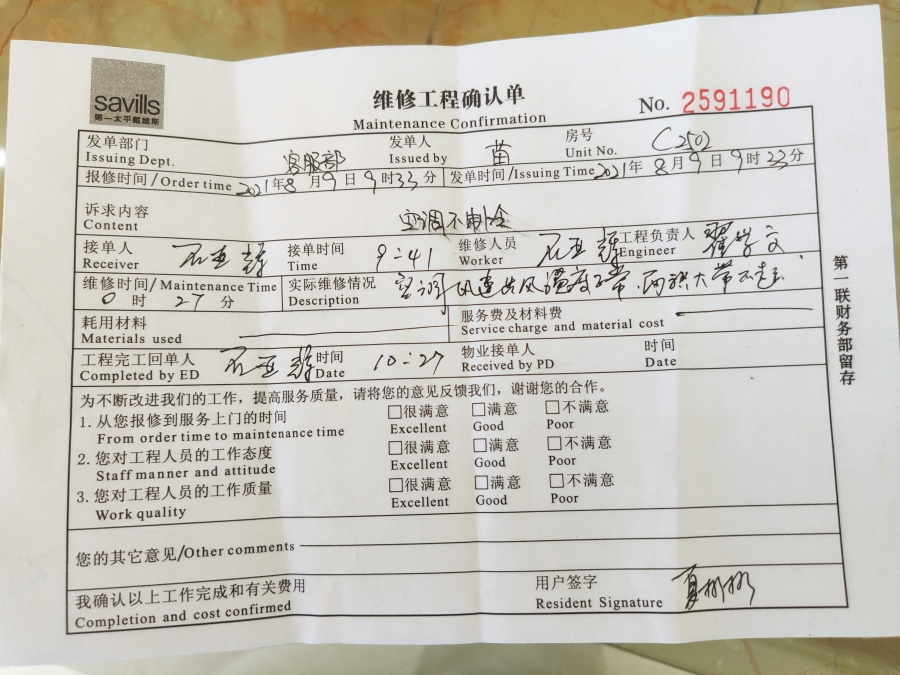 savills
第一太平戴維斯
维修工程确认单
Maintenance Confirmation
No. 2591190
发单部门 客服部 发单人 苗 房号 C2502
Issuing Dept. Issued by Unit No.
报修时间/Order time 2021年8月9日9时33分 发单时间/Issuing Time 2021年8月9日9时33分
诉求内容 空调不制冷
Content
接单人 石亚 接单时间 9:41 维修人员 石亚 工程负责人 翟学文
Receiver Time Worker Engineer
维修时间/Maintenance Time 实际维修情况 空调风速出风温度正常
0时27分 Description
耗用材料 服务费及材料费
Materials used Service charge and material cost
工程完工回单人 石亚 时间 10:27 物业接单人 时间
Completed by ED Date Received by PD Date
为不断改进我们的工作，提高服务质量，请将您的意见反馈我们，谢谢您的合作。
1. 从您报修到服务上门的时间 □很满意 □满意 □不满意
From order time to maintenance time Excellent Good Poor
2. 您对工程人员的工作态度 □很满意 □满意 □不满意
Staff manner and attitude Excellent Good Poor
3. 您对工程人员的工作质量 □很满意 □满意 □不满意
Work quality Excellent Good Poor
您的其它意见/Other comments
我确认以上工作完成和有关费用 用户签字
Completion and cost confirmed Resident Signature
第一联财务部留存